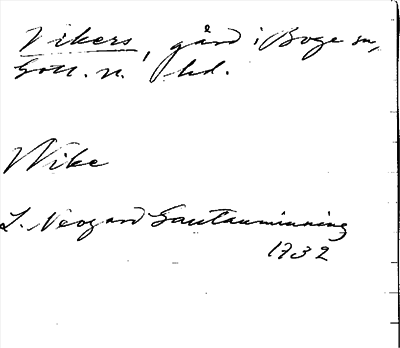 Vikers, gård i Boge sn,
Gotl. n. hd.
Wike
L. Neogard Gautauminning
1732